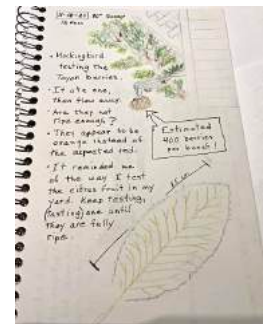 80° Sunny
• Mockingbird
testing the
Toyon berries.
• It ate one,
then flew away.
• Are they not
ripe enough?
• They appear to be
orange instead of
the expected red.
• It reminded me
of the way I test
the citrus fruit in my
yard. Keep testing,
(tasting) one until
they are fully
ripe.
Estimated
400 berries
per bunch!